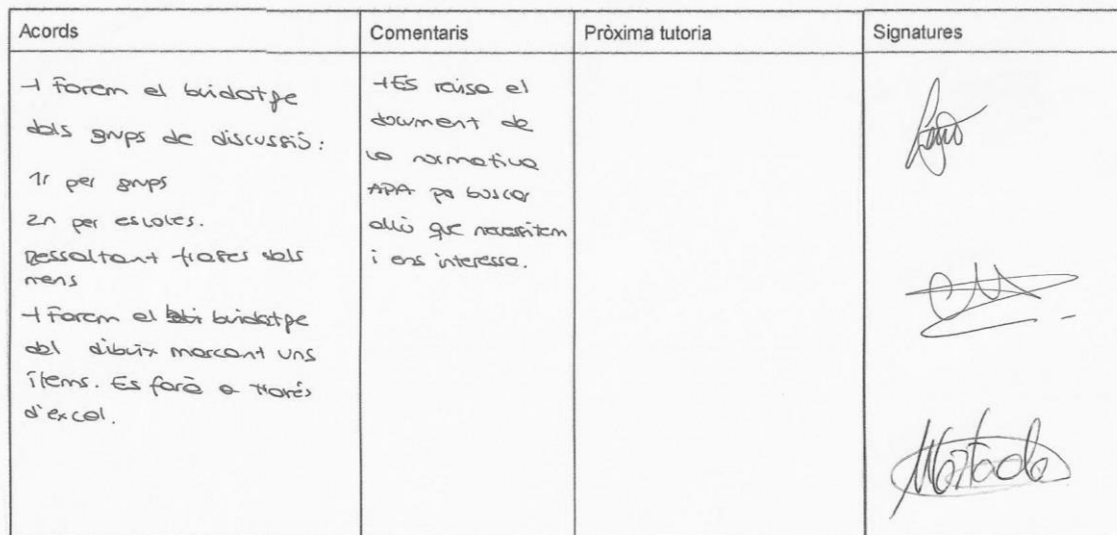 Acords
Comentaris
Pròxima tutoria
Signatures
→ Farem el buidatge
dels grups de discussió:
1r per grups
2n per escoles.
Ressaltant frases dels
nens
→ Farem el buidatge
del dibuix marcant uns
ítems. Es farà a través
d'excel.
→ Es revisa el
document de
la normativa
APA per buscar
allò que necessitem
i ens interessa.